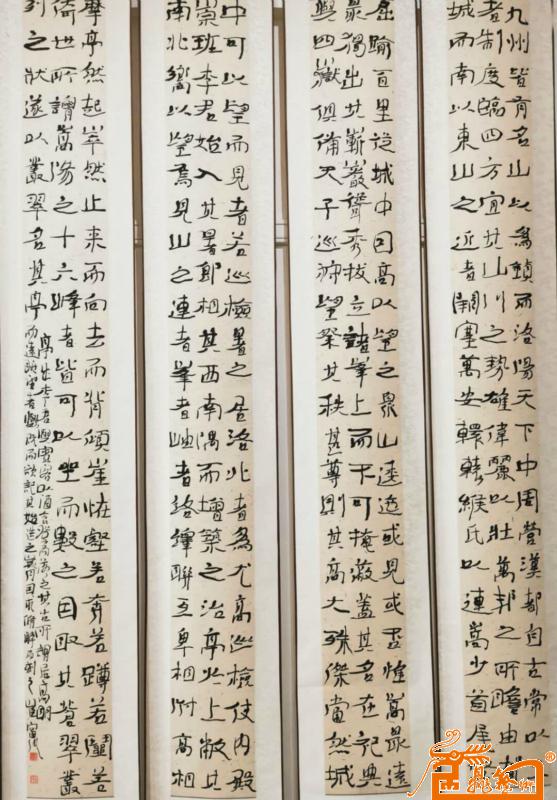 九州皆有名山以為鎮而洛陽天下中周營漢都自古常以
者制度臨四方宜其山川之勢雄偉麗以壯萬邦之所瞻由都
城而南以東山之近者闕塞萬安轘轅緱氏以連嵩少首尾
屈踰百里從城中因高以望之眾山逶迤或見或否惟嵩最遠
最獨出其嶄巖聳秀拔立諸峯上而不可掩蔽蓋其名在祀典
與四嶽俱備天子巡狩望祭其秩甚尊則其高大殊傑當然城
中可以望而見者若巡檢署之居洛北者為尤高巡檢使内殿
崇班李君始入其署即相其西南隅而增築之治亭於上敞其
南北嚮以望焉見山之連者峯者岫者絡繹聯亙卑相附高相
摩亭然起崒然止来而向去而背頹崖怪壑若奔若蹲若鬭若
倚世所謂嵩陽之十六峰者皆可以坐而數之因取其蒼翠叢
列之狀遂以叢翠名其亭
亭成李君與賓客以酒食登而落之其古所謂居高明
而遠眺望者歟既而欲記其始造之歲月因求